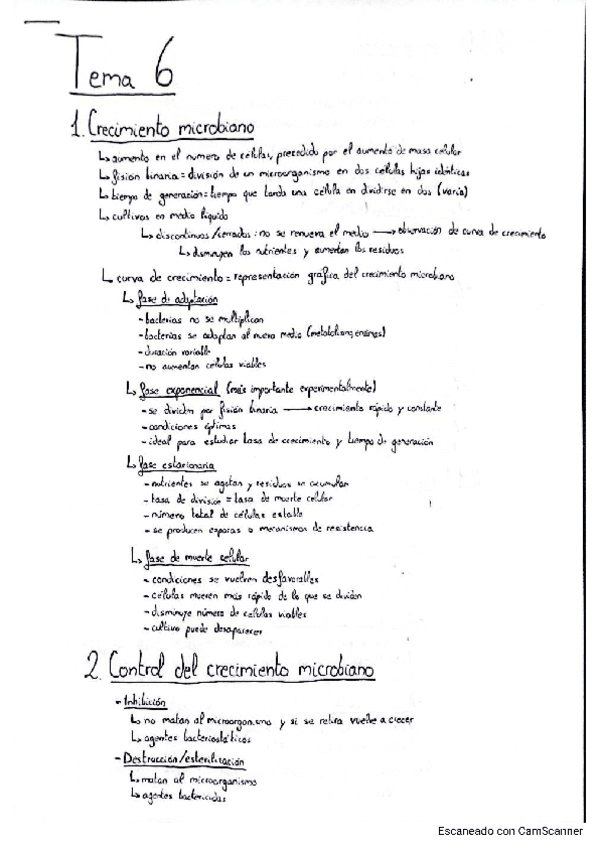 Tema 6
1. Crecimiento microbiano
↳ aumento en el numero de células, precedido por el aumento de masa celular
↳ fisión binaria = división de un microorganismo en dos células hijas idénticas
↳ tiempo de generación = tiempo que tarda una célula en dividirse en dos (varía)
↳ cultivos en medio líquido
↳ discontinuos/cerrados: no se renueva el medio → observación de curva de crecimiento
↳ disminuyen los nutrientes y aumentan los residuos
↳ curva de crecimiento = representación gráfica del crecimiento microbiano
↳ fase de adaptación
- bacterias no se multiplican
- bacterias se adaptan al nuevo medio
- duración variable
- no aumentan células viables
↳ fase exponencial (más importante experimentalmente)
- se dividen por fisión binaria → crecimiento rápido y constante
- condiciones óptimas
- ideal para estudiar tasa de crecimiento y tiempo de generación
↳ fase estacionaria
- nutrientes se agotan y residuos se acumulan
- tasa de división = tasa de muerte celular
- número total de células estable
- se producen esporas o mecanismos de resistencia
↳ fase de muerte celular
- condiciones se vuelven desfavorables
- células mueren más rápido de lo que se dividen
- disminuye número de células viables
- cultivo puede desaparecer
2. Control del crecimiento microbiano
- Inhibición
↳ no matan al microorganismo y si se retira vuelve a crecer
↳ agentes bacteriostáticos
- Destrucción/esterilización
↳ matan al microorganismo
↳ agentes bactericidas
Escaneado con CamScanner